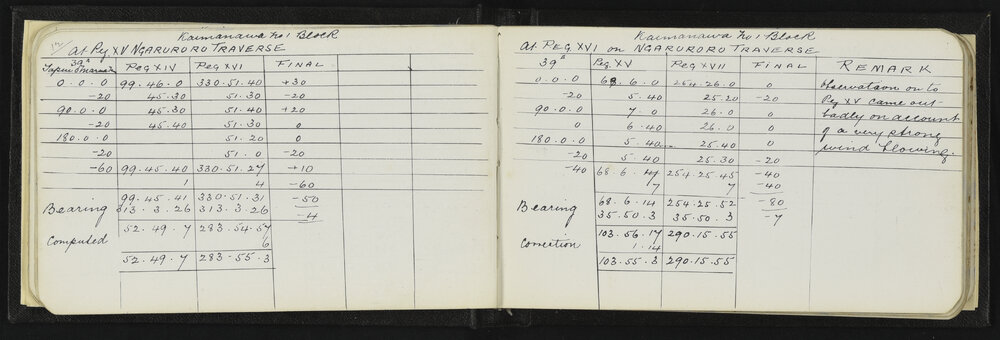 Kaimanawa No 1 Block
At Peg XV NGARURORO TRAVERSE
39ᴬ PEG XIV PEG XVI FINAL
0.0.0 99.46.0 330.51.40 +30
-20 45.30 51.30 -20
90.0.0 45.30 51.40 +20
-20 45.40 51.30 0
180.0.0 51.20 0
-20 51.0 -20
-60 99.45.40 330.51.27 +10
1 4 -60
99.45.41 330.51.31 -50
Bearing 313.3.26 313.3.26 -4
52.49.7 283.54.57
Computed 6
52.49.7 283-55.3
Kaimanawa No 1 Block
At PEG XVI on NGARURORO TRAVERSE
39ᴬ Peg XV PEG XVII FINAL REMARK
0.0.0 68.6.0 254.26.0 0 Observation on to
-20 5.40 25.20 -20 Peg XV came out
90.0.0 7.0 26.0 0 badly on account
0 6.40 26.0 0 of a very strong
180.0.0 5.40 25.40 0 wind blowing.
-20 5.40 25.30 -20
-40 68.6.7 254.25.45 -40
7 7 -40
68.6.14 254.25.52 -80
Bearing 35.50.3 35.50.3 -7
103.56.17 290.15.55
Correction 1.14
103.55.3 290.15.55